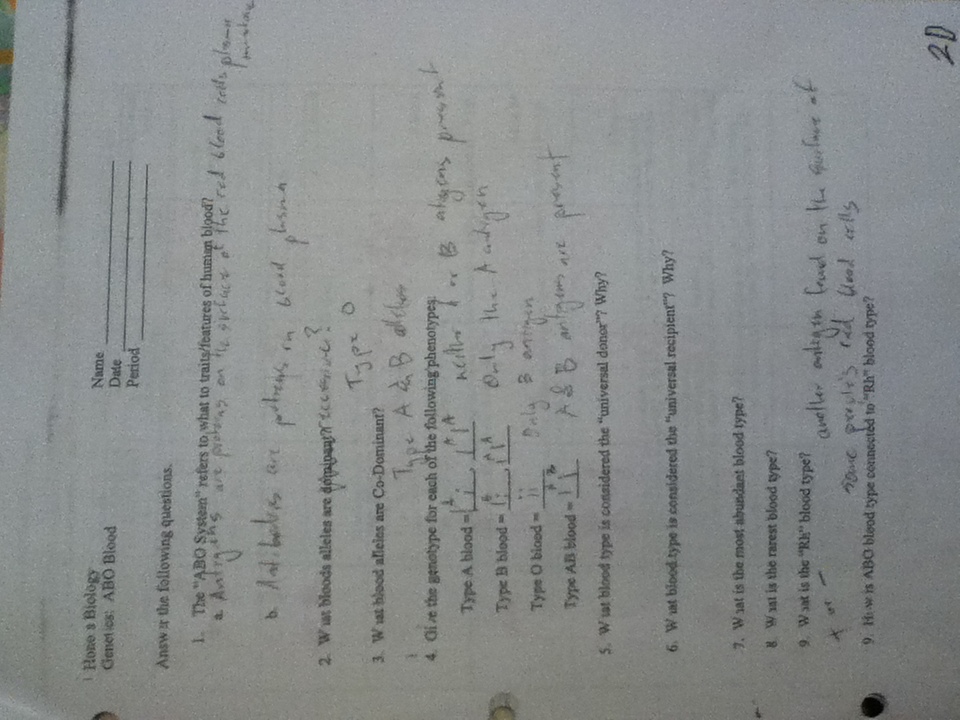 Hono s Biology
Genetics: ABO Blood
Name
Date
Period
Answer the following questions.
1. The "ABO System" refers to what to traits/features of human blood?
a. Antigens are proteins on the surface of the red blood cells plasma
membrane
b. Antibodies are proteins in blood plasma
2. W iat bloods alleles are dominant? recessive?
Type O
3. W iat blood alleles are Co-Dominant?
Type A & B alleles
4. Gi ve the genotype for each of the following phenotypes:
Type A blood = I^A i, I^A I^A neither A or B atigens present
Type B blood = I^B i, I^A I^A Only the A antigen
Type O blood = ii Only B antigen
Type AB blood = I^A I^B A & B antigens are present
5. W iat blood type is considered the "universal donor"? Why?
6. W iat blood type is considered the "universal recipient"? Why?
7. W iat is the most abundant blood type?
8. W iat is the rarest blood type?
9. W iat is the "Rh" blood type?
+ or - another antigen found on the surface of
some people's red blood cells
9. H w is ABO blood type connected to "Rh" blood type?
2D